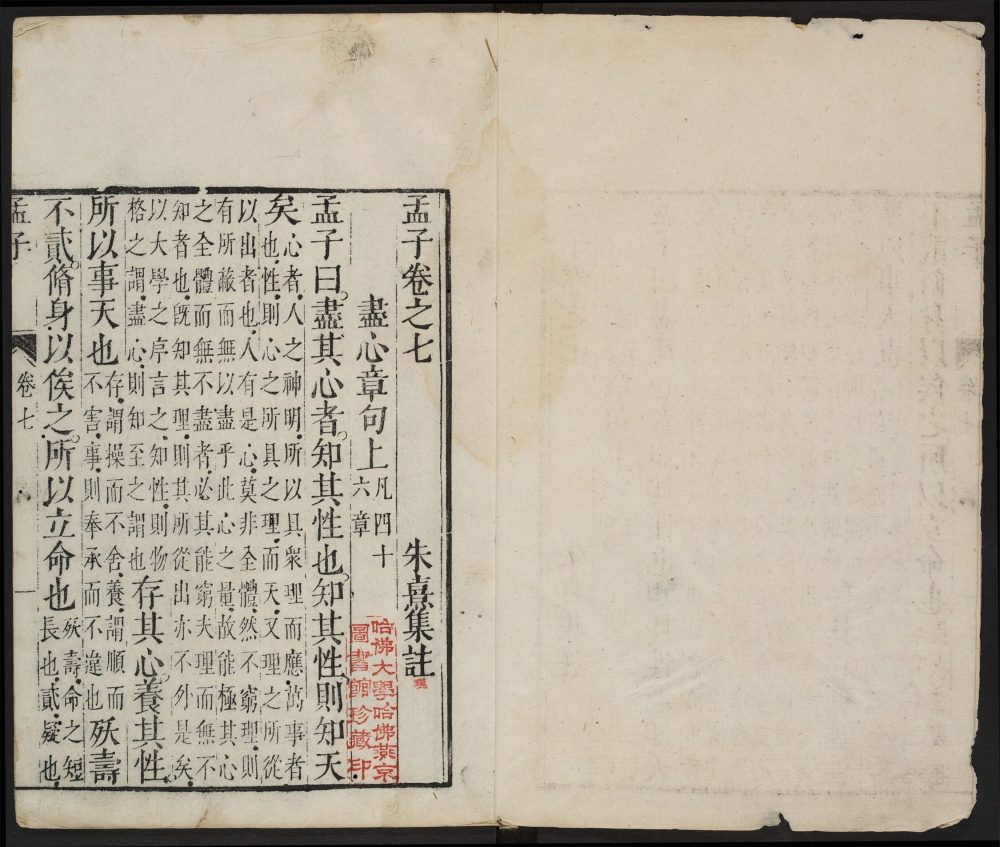 孟子卷之七　朱熹集註
盡心章句上
凡四十
六章
孟子曰。盡其心者。知其性也。知其性。則知天
矣
心者、人之神明、所以具衆理而應萬事者
也、性、則心之所具之理、而天、又理之所從
以出者也、人有是心、莫非全體、然不窮理、則
有所蔽而無以盡乎此心之量、故能極其心
之全體而無不盡者、必其能窮夫理而無不
知者也、既知其理、則其所從出亦不外是矣、
以大學之序言之、知性、則物
格之謂、盡心、則知至之謂也
存其心。養其性。
所以事天也
存、謂操而不舍、養、謂順而
不害、事、則奉承而不違也
殀壽
不貳。脩身以俟之。所以立命也
殀壽、命之短
長也、貳、疑也、
孟子
卷七
一
哈佛大學哈佛燕京
圖書館珍藏印